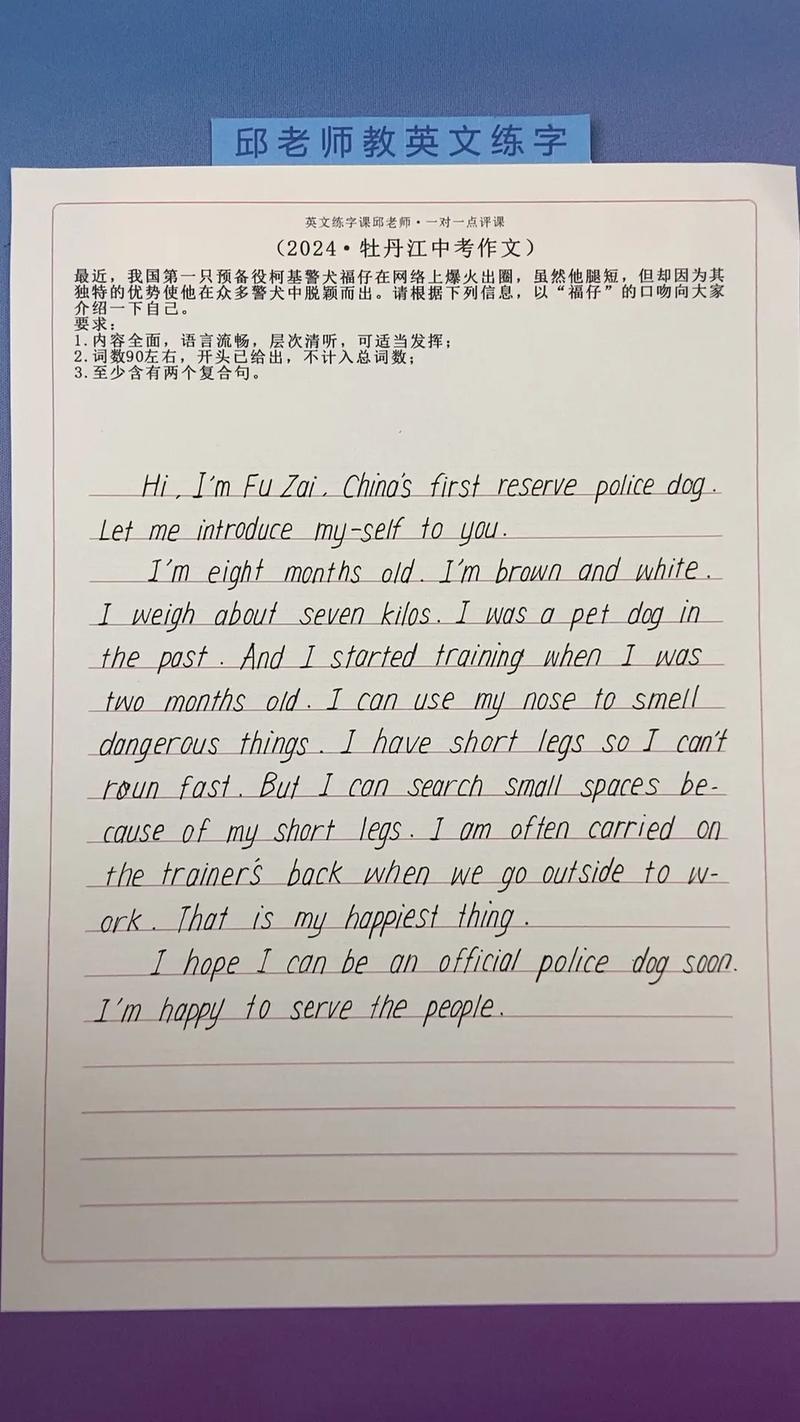 邱老师教英文练字
英文练字课邱老师·一对一点评课
（2024·牡丹江中考作文）
最近，我国第一只预备役柯基警犬福仔在网络上爆火出圈，虽然他腿短，但却因为其
独特的优势使他在众多警犬中脱颖而出。请根据下列信息，以“福仔”的口吻向大家
介绍一下自己。
要求：
1.内容全面，语言流畅，层次清听，可适当发挥；
2.词数90左右，开头已给出，不计入总词数；
3.至少含有两个复合句。
Hi, I'm Fu Zai, China's first reserve police dog.
Let me introduce my-self to you.
I'm eight months old. I'm brown and white.
I weigh about seven kilos. I was a pet dog in
the past. And I started training when I was
two months old. I can use my nose to smell
dangerous things. I have short legs so I can't
fast. But I can search small spaces be-
cause of my short legs. I am often carried on
the trainer's back when we go outside to w-
ork. That is my happiest thing.
I hope I can be an official police dog soon.
I'm happy to serve the people.